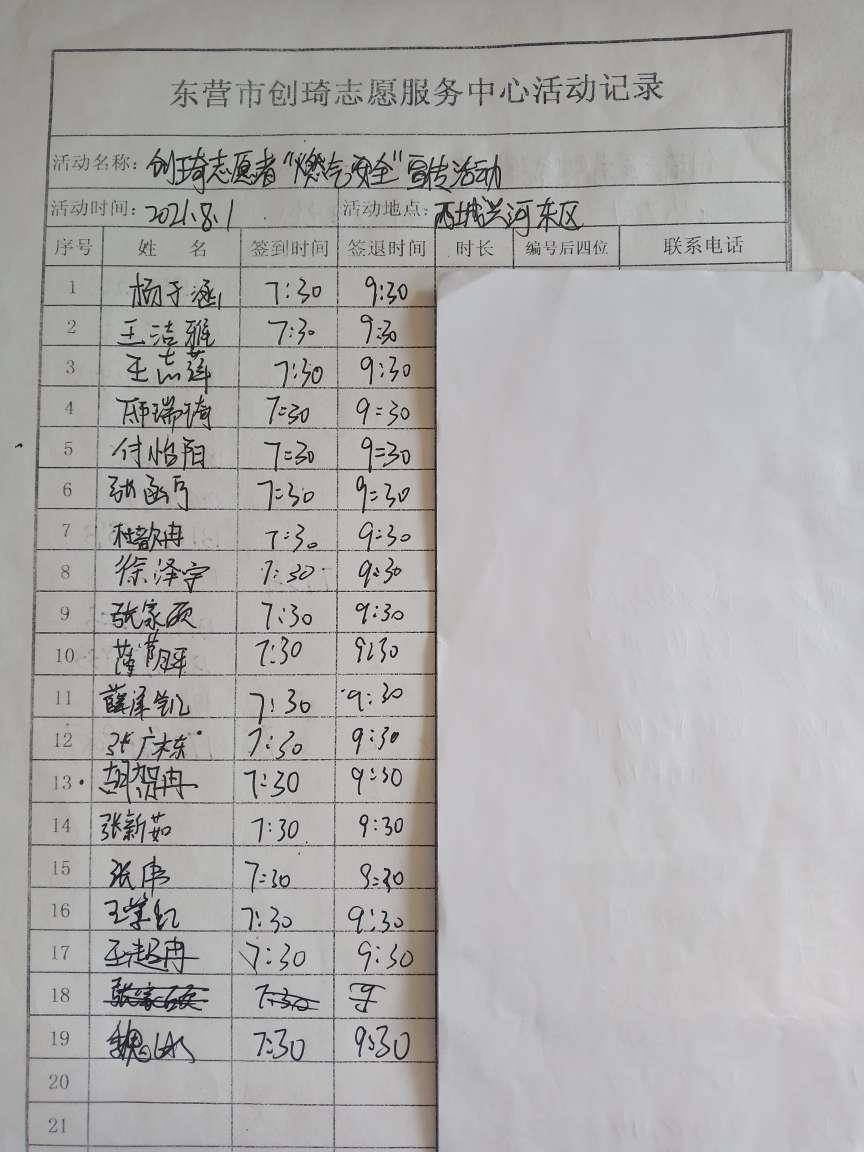 东营市创琦志愿服务中心活动记录
活动名称: 创琦志愿者“燃气安全”宣传活动
活动时间: 2021.8.1 活动地点: 西城兴河东区
序号 姓 名 签到时间 签退时间 时长 编号后四位 联系电话
1 杨子涵 7:30 9:30
2 王洁雅 7:30 9:30
3 王志莲 7:30 9:30
4 邴瑞琦 7:30 9:30
5 付怡阳 7:30 9:30
6 张函 7:30 9:30
7 杜歆冉 7:30 9:30
8 徐泽宇 7:30 9:30
9 张家硕 7:30 9:30
10 7:30 9:30
11 薛泽凯 7:30 9:30
12 张广东 7:30 9:30
13 胡贺冉 7:30 9:30
14 张新茹 7:30 9:30
15 张伟 7:30 9:30
16 王学红 7:30 9:30
17 王超冉 7:30 9:30
18 张家硕 7:30 9
19 魏 7:30 9:30
20
21